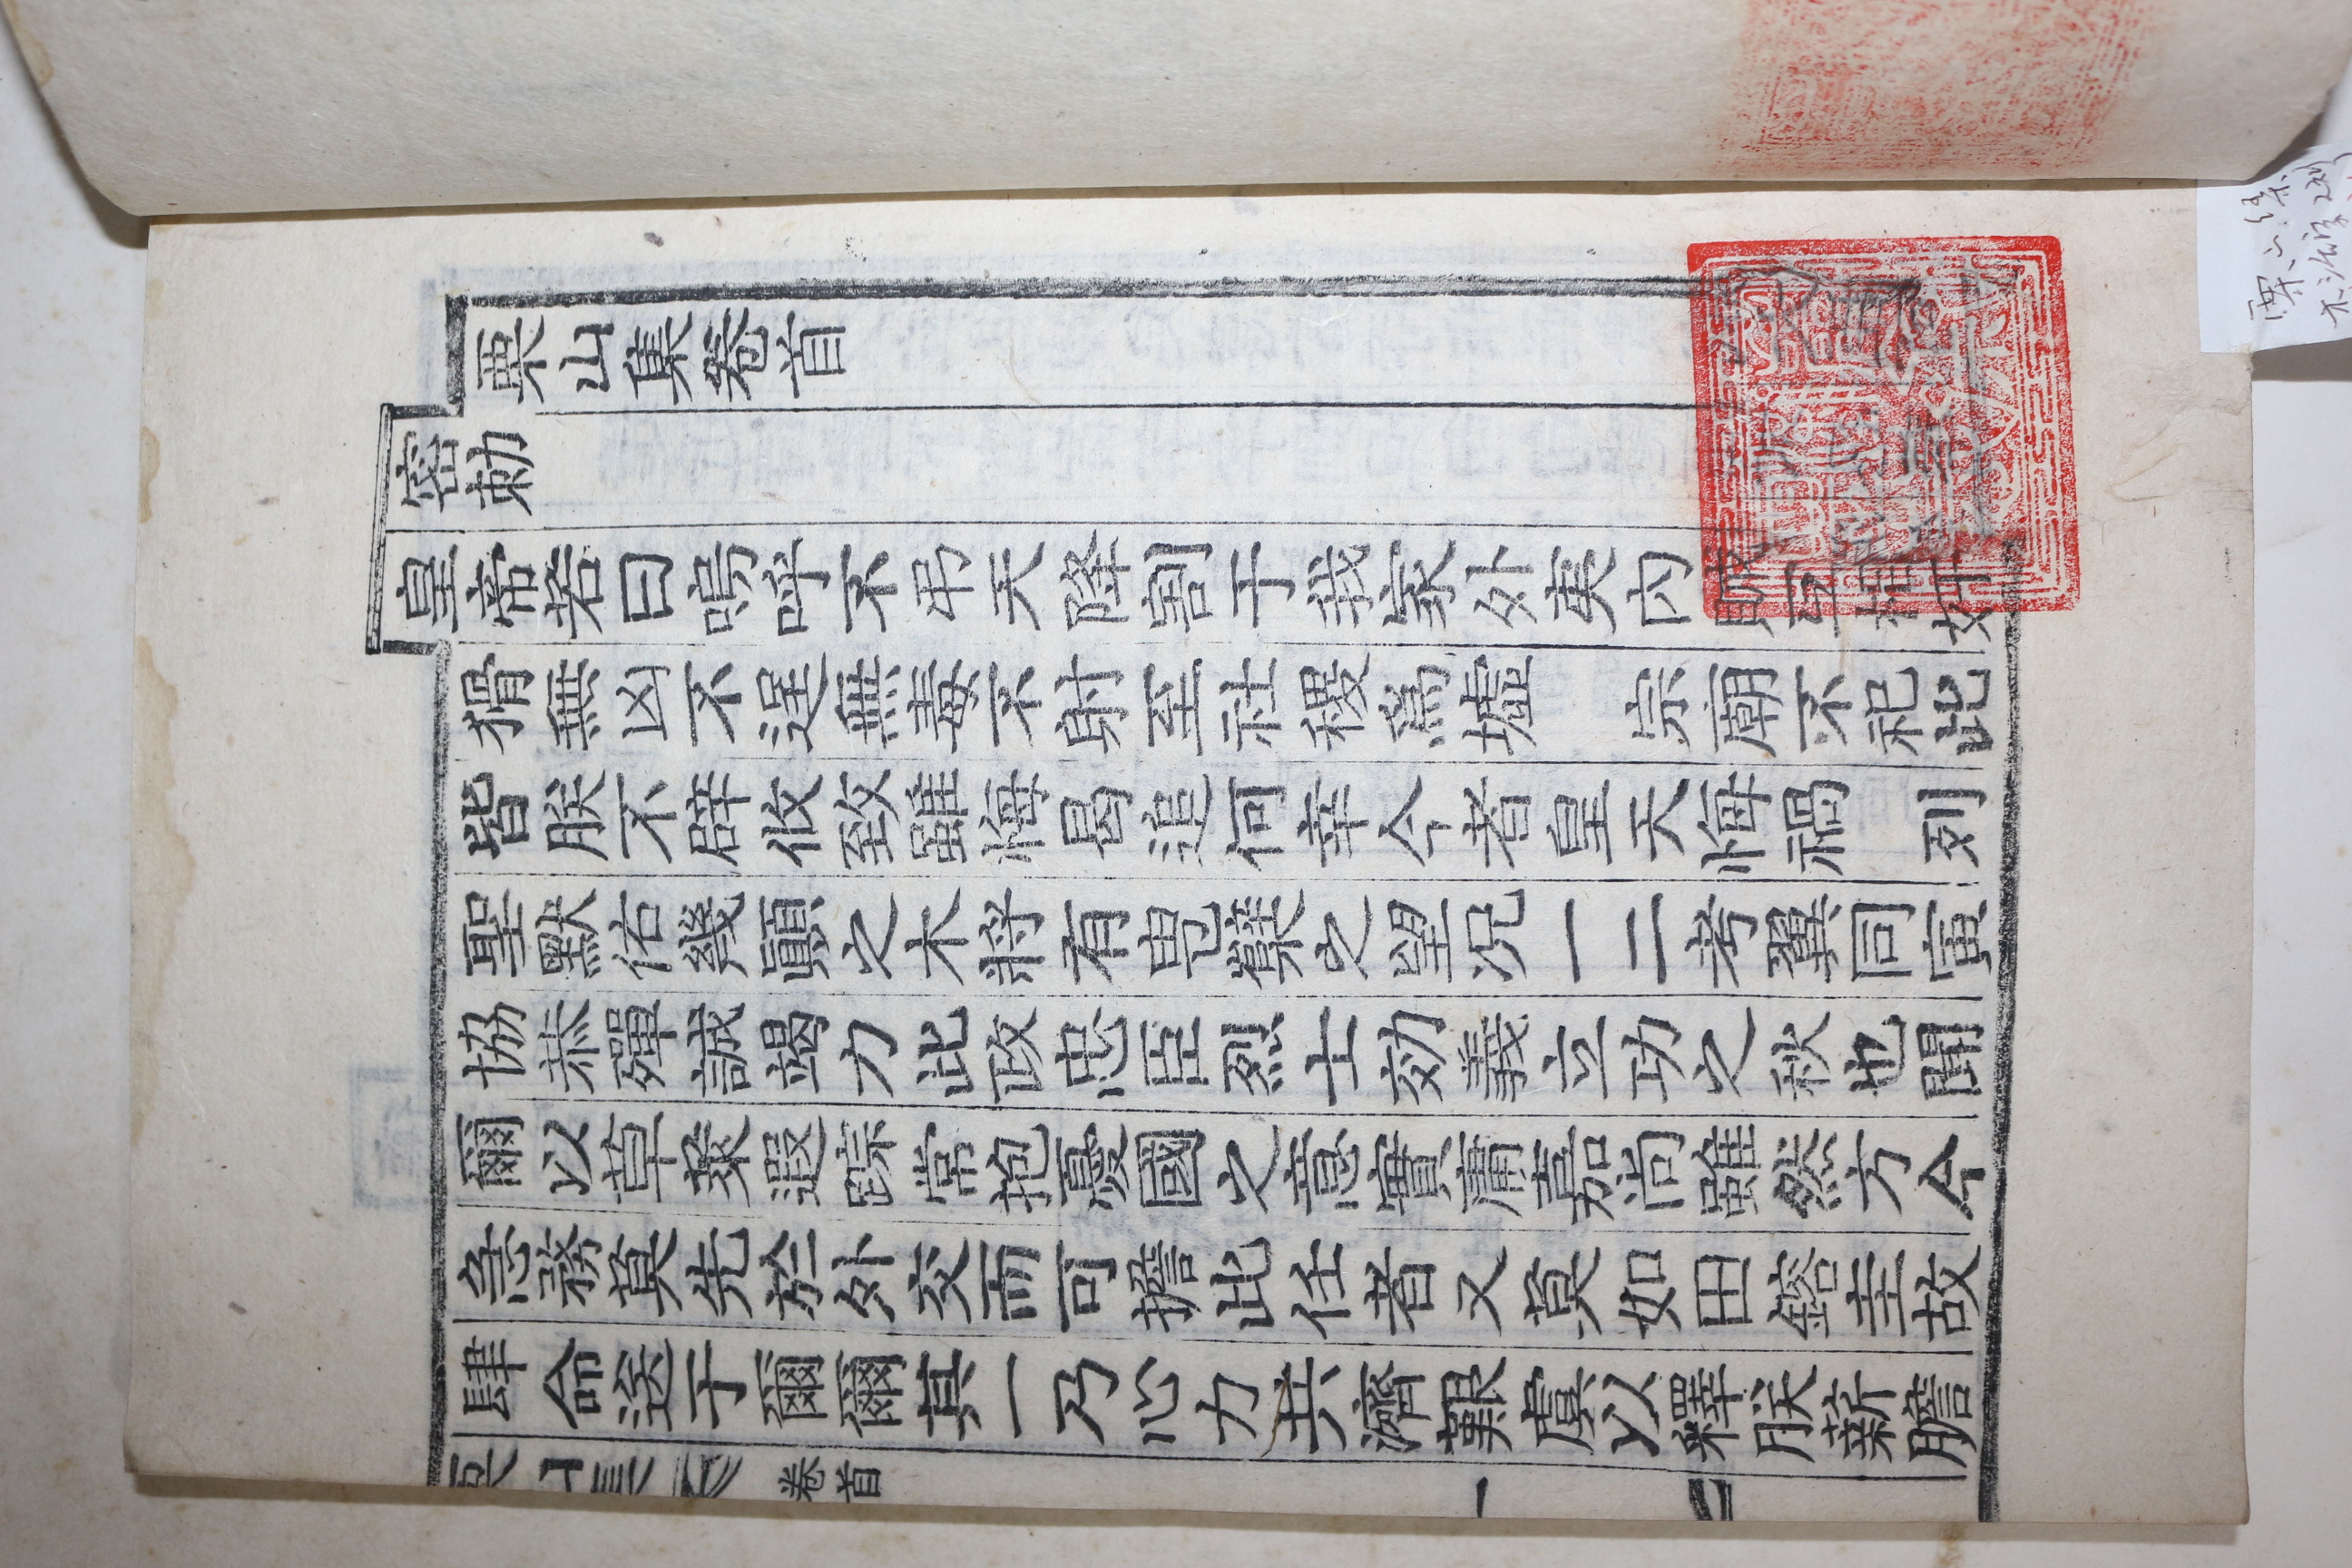 栗山集卷首
密勅
皇帝若曰嗚呼不弔天降割于我家外夷內賊互相奸
猾無凶不逞無毒不射至社稷爲墟 宗廟不祀此
皆朕不辟攸致雖悔曷追何幸今者皇天悔禍 列
聖默佑幾顚之木將有甹蘖之望况一二考翼同寅
協恭殫誠竭力此政忠臣烈士効義立功之秋也聞
爾以草萊遐踪常抱憂國之意實庸嘉尙雖然方今
急務莫先於外交而可擔此任者又莫如田鎔圭故
肆命送于爾爾其一乃心力共濟艱虞以釋朕薪膽
栗山集 卷首 一
栗山集
木活字 2冊